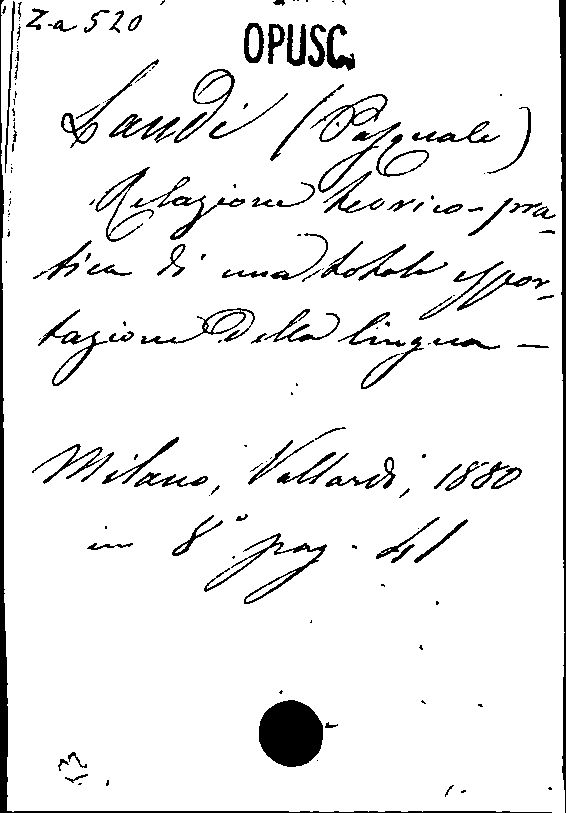 Z-a 520
OPUSC.
Landi (Pasquale)
Relazione teorico-pra-
tica di una totale espor-
tazione della lingua –
Milano, Vallardi, 1880
in 8° pag. 41